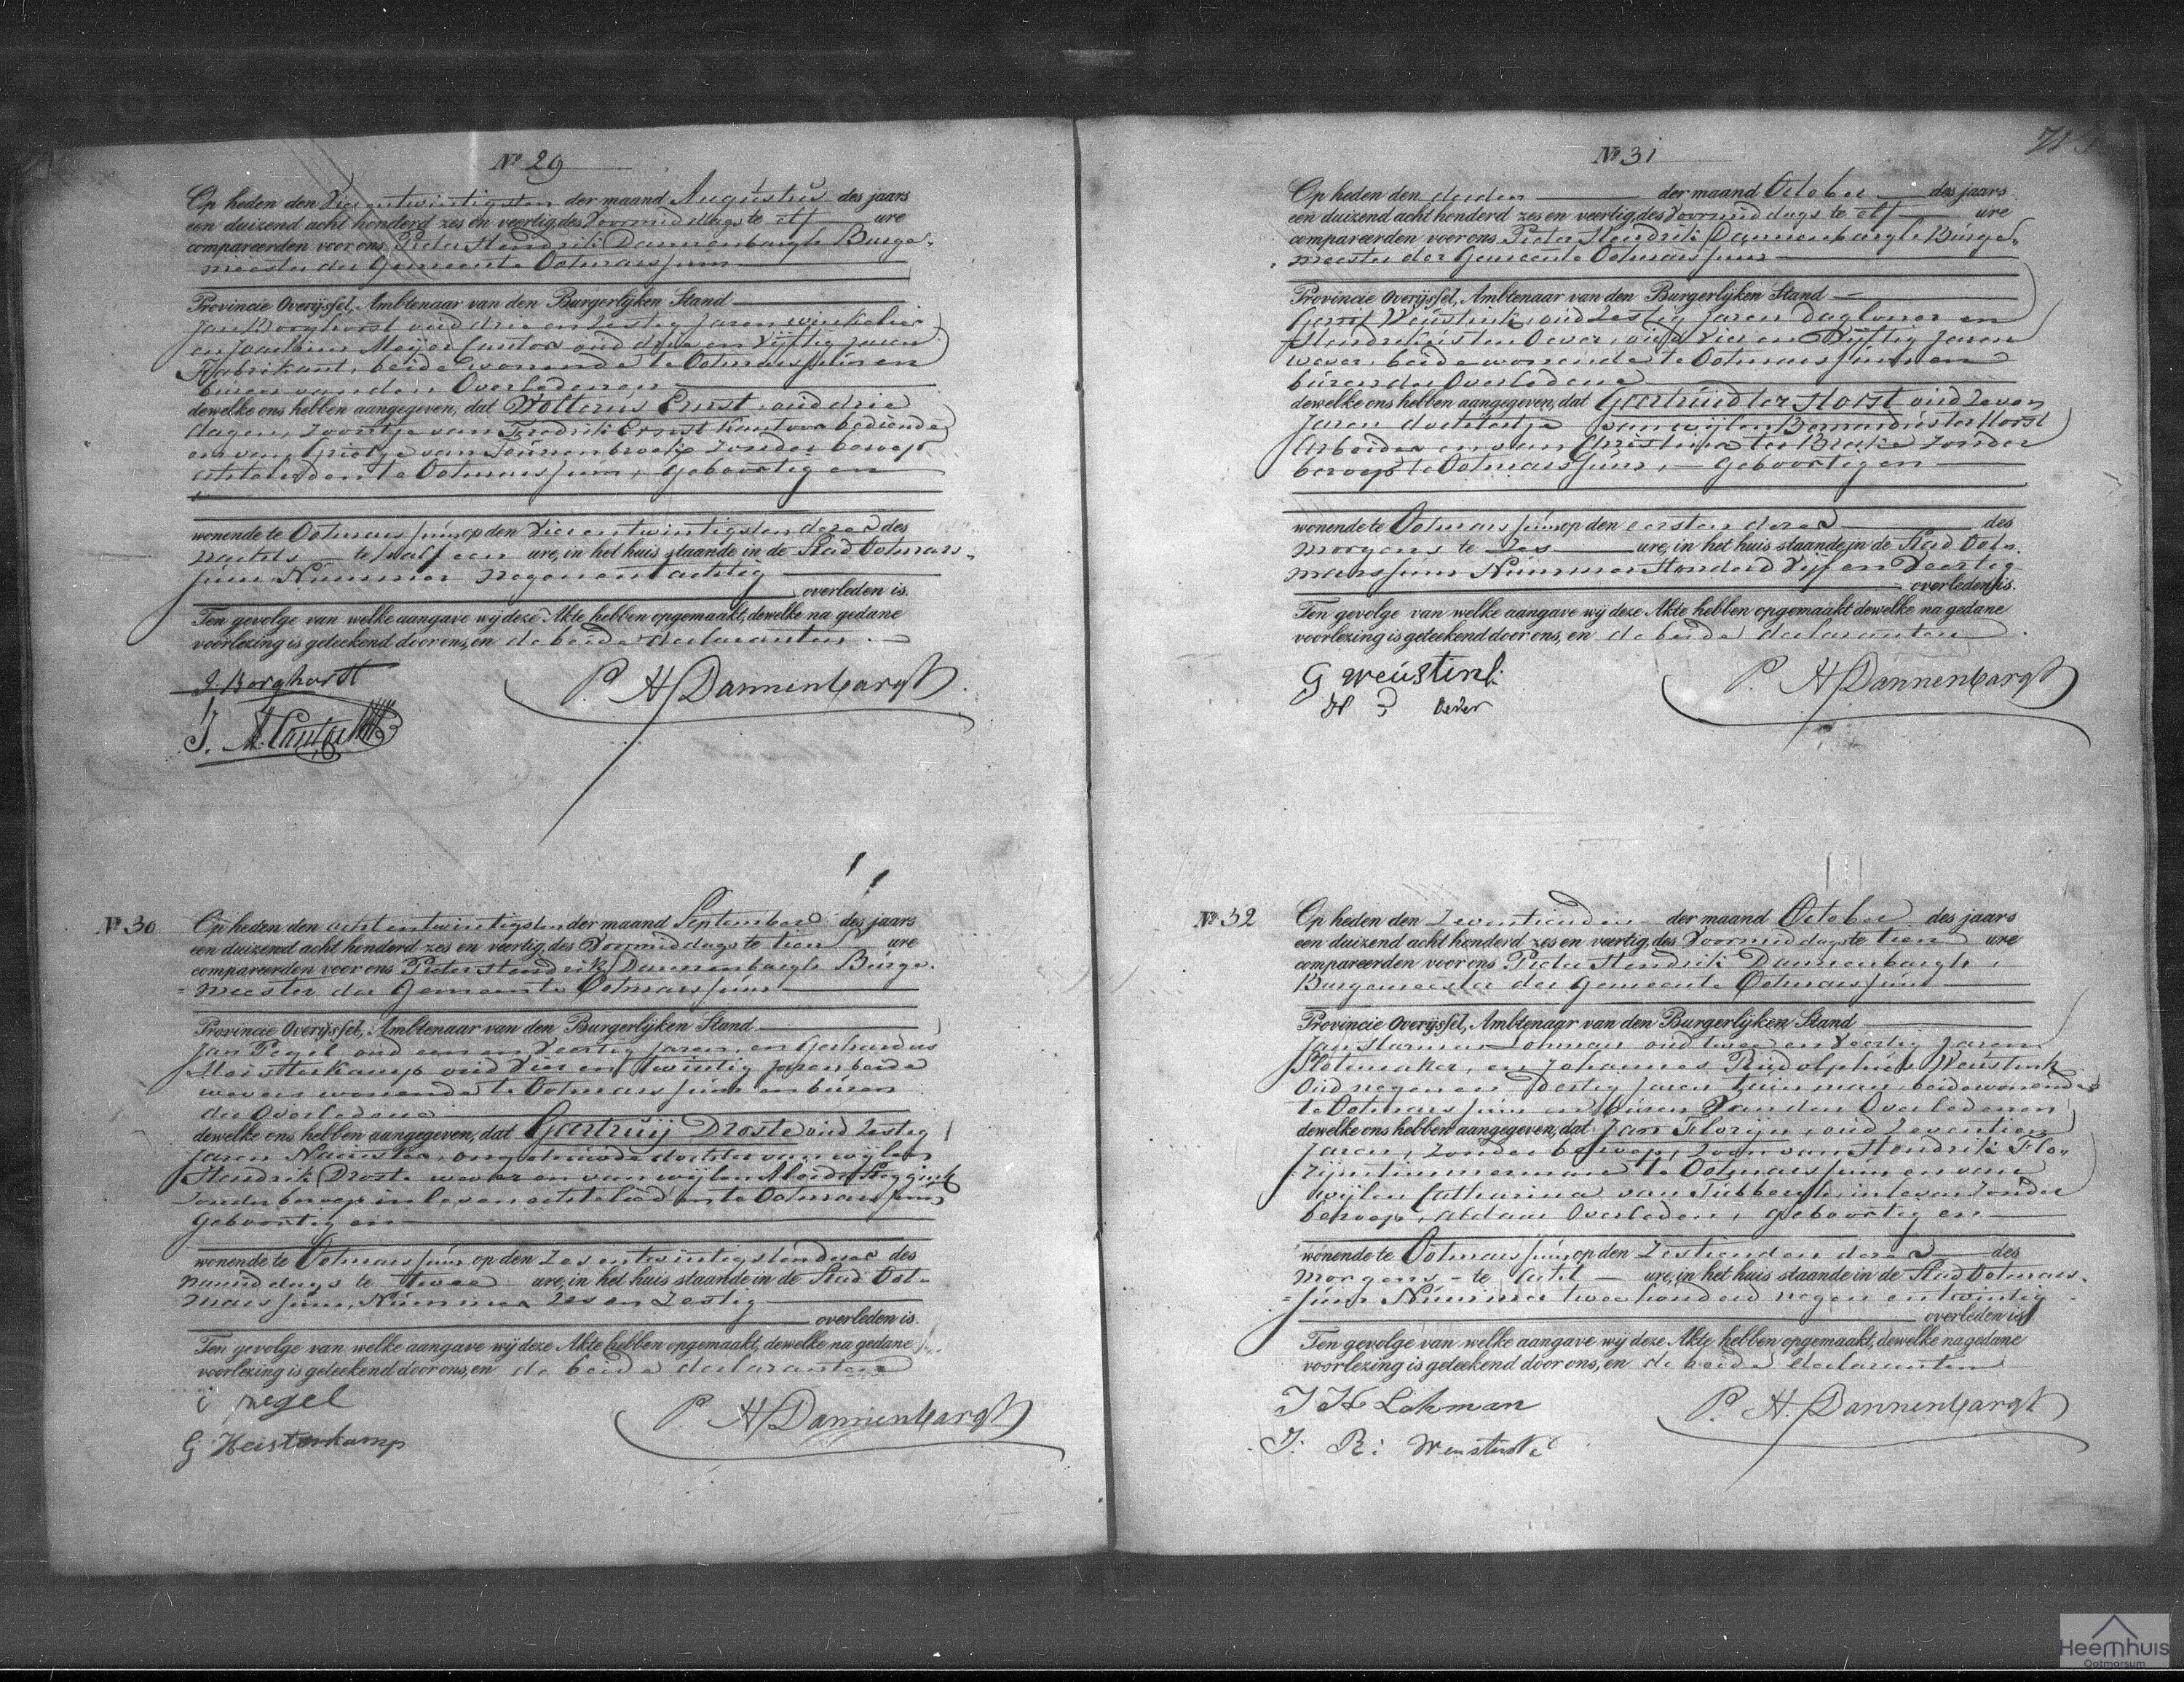 Nº 29
Op heden den Vierentwintigsten der maand Augustus des jaars
een duizend acht honderd zes en veertig, des Voormiddags te elf ure
compareerden voor ons Pieter Hendrik Dannenbargh Burge-
meester der Gemeente Ootmarssum
Provincie Overijssel, Ambtenaar van den Burgerlijken Stand
Jan Borghorst oud drie en zestig Jaren winkelier
en Joachim Meijer Cantor oud drie en Vijftig Jaren
Fabrikant, beide wonende te Ootmarssum en
buren van den Overledenen
dewelke ons hebben aangegeven, dat Wolterus Ernst, oud drie
dagen, zoontje van Fredrik Ernst Kantoor bediende
en van Grietje van zonder beroep
te Ootmarssum, geboortig en
wonende te Ootmarssum op den Vierentwintigsten dezer des
nachts te half een ure, in het huis staande in de Stad Ootmars-
sum Nummer negenentachtig
overleden is.
Ten gevolge van welke aangave wij deze Akte hebben opgemaakt, dewelke na gedane
voorlezing is geteekend door ons, en de beide declaranten
J. Borghorst
P. H. Dannenbargh
J. M. Cantor
Nº 30
Op heden den achtentwintigsten der maand September des jaars
een duizend acht honderd zes en veertig, des Voormiddags te tien ure
compareerden voor ons Pieter Hendrik Dannenbargh Burge-
meester der Gemeente Ootmarssum
Provincie Overijssel, Ambtenaar van den Burgerlijken Stand
Jan Pegel oud een en Veertig Jaren en Gerhardus
Heisterkamp oud Vier en twintig Jaren beide
wevers wonende te Ootmarssum en buren
der Overledene
dewelke ons hebben aangegeven, dat Geertruij Droste oud Zestig
Jaren Naaister, ongehuwde dochter van wijlen
Hendrik Droste wever en van wijlen Aleida
zonder beroep in leven te Ootmarssum
Geboortig en
wonende te Ootmarssum op den Zesentwintigsten dezer des
namiddags te twee ure, in het huis staande in de Stad Oot-
marssum, Nummer Zes en Zestig
overleden is.
Ten gevolge van welke aangave wij deze Akte hebben opgemaakt, dewelke na gedane
voorlezing is geteekend door ons, en de beide declaranten
J pegel
P. H. Dannenbargh
G Heisterkamp
Nº 31
Op heden den derden der maand October des jaars
een duizend acht honderd zes en veertig, des Voormiddags te elf ure
compareerden voor ons Pieter Hendrik Dannenbargh Burge-
meester der Gemeente Ootmarssum
Provincie Overijssel, Ambtenaar van den Burgerlijken Stand
Gerrit Weustink, oud Zestig Jaren daglooner en
Hendrikus ten Oever, oud Vier en Vijftig Jaren
wever, beide wonende te Ootmarssum en
buren der Overledene
dewelke ons hebben aangegeven, dat Geertruid ter Horst oud Zeven
Jaren dochtertje van wijlen Bernardus ter Horst
Arbeider en van Christina ter Brake zonder
beroep te Ootmarssum, geboortig en
wonende te Ootmarssum op den eersten dezer des
morgens te Zes ure, in het huis staande in de Stad Oot-
marssum Nummer Honderd Vijf en Veertig
overleden is.
Ten gevolge van welke aangave wij deze Akte hebben opgemaakt dewelke na gedane
voorlezing is geteekend door ons, en de beide declaranten
G weustink
P. H. Dannenbargh
H Oever
Nº 32
Op heden den Zeventienden der maand October des jaars
een duizend acht honderd zes en veertig, des Voormiddags te tien ure
compareerden voor ons Pieter Hendrik Dannenbargh
Burgemeester der Gemeente Ootmarssum
Provincie Overijssel, Ambtenaar van den Burgerlijken Stand
Jan Harmen Lohman oud twee en Veertig Jaren
Slotemaker, en Johannes Rudolphus Weustink
Oud negen en Dertig Jaren tuinman, beide wonende
te Ootmarssum en buren van den Overledenen
dewelke ons hebben aangegeven, dat Jan Florijn, oud Zeventien
Jaren, zonder beroep, zoon van Hendrik Flo-
rijn timmerman te Ootmarssum en van
wijlen Catharina van Tubbergh, in leven zonder
beroep, aldaar Overleden, geboortig en
wonende te Ootmarssum op den Zestienden dezer des
morgens te Acht ure, in het huis staande in de Stad Ootmars-
sum Nummer twee honderd negen en twintig
overleden is
Ten gevolge van welke aangave wij deze Akte hebben opgemaakt, dewelke na gedane
voorlezing is geteekend door ons, en de beide declaranten
J H Lohman
P. H. Dannenbargh
J. R. Weustink
Heemhuis
Ootmarsum